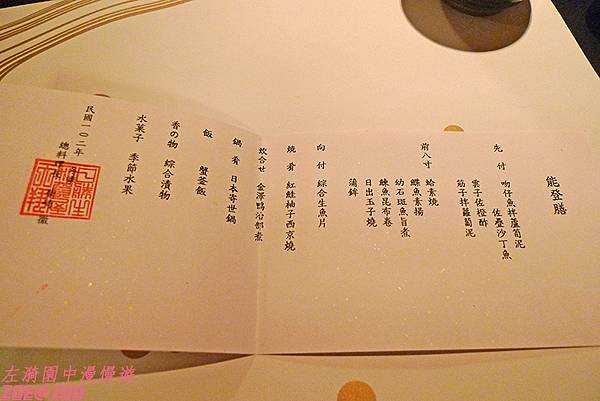 能登膳
先付 吻仔魚拌蘆筍泥
佐疊沙丁魚
雲子佐橙酢
筋子拌蘿蔔泥
前八寸 蛤素燒
鰈魚素揚
幼石斑魚旨煮
鰊魚昆布卷
日出玉子燒
蒲鉾
向付 綜合生魚片
燒肴 紅鮭柚子西京燒
炊合せ 金澤鴨治部煮
鍋肴 日本寄世鍋
飯 蟹釜飯
香の物 綜合漬物
水菓子 季節水果
民國一〇二年
總料理
左漪園中漫慢遊